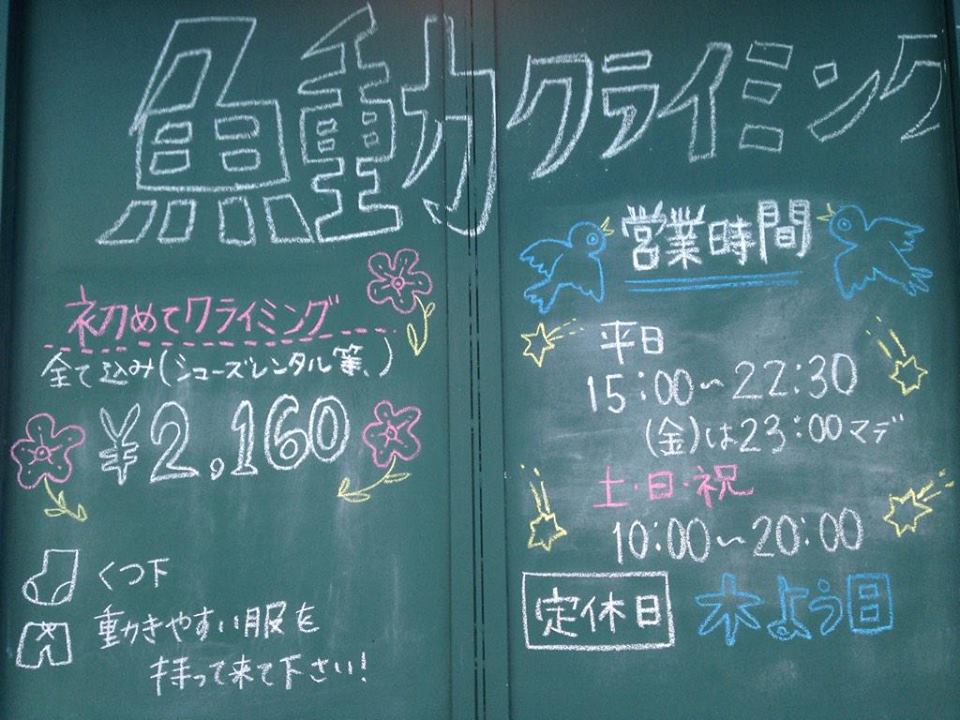 魚動クライミング
初めてクライミング
全て込み(シューズレンタル等、)
¥2,160
くつ下
動きやすい服を
持って来て下さい!
営業時間
平日
15:00〜22:30
(金)は23:00マデ
土・日・祝
10:00〜20:00
定休日 木よう日